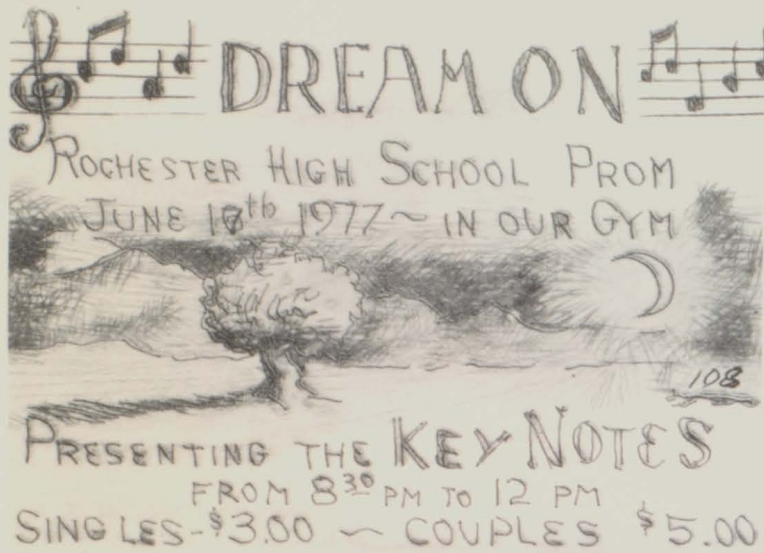 DREAM ON
ROCHESTER HIGH SCHOOL PROM
JUNE 18th 1977 ~ IN OUR GYM
108
PRESENTING THE KEY NOTES
FROM 8 30 PM TO 12 PM
SINGLES - $3.00 ~ COUPLES $5.00